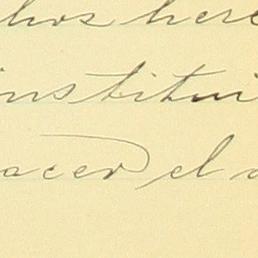 hos here
institui
acer el